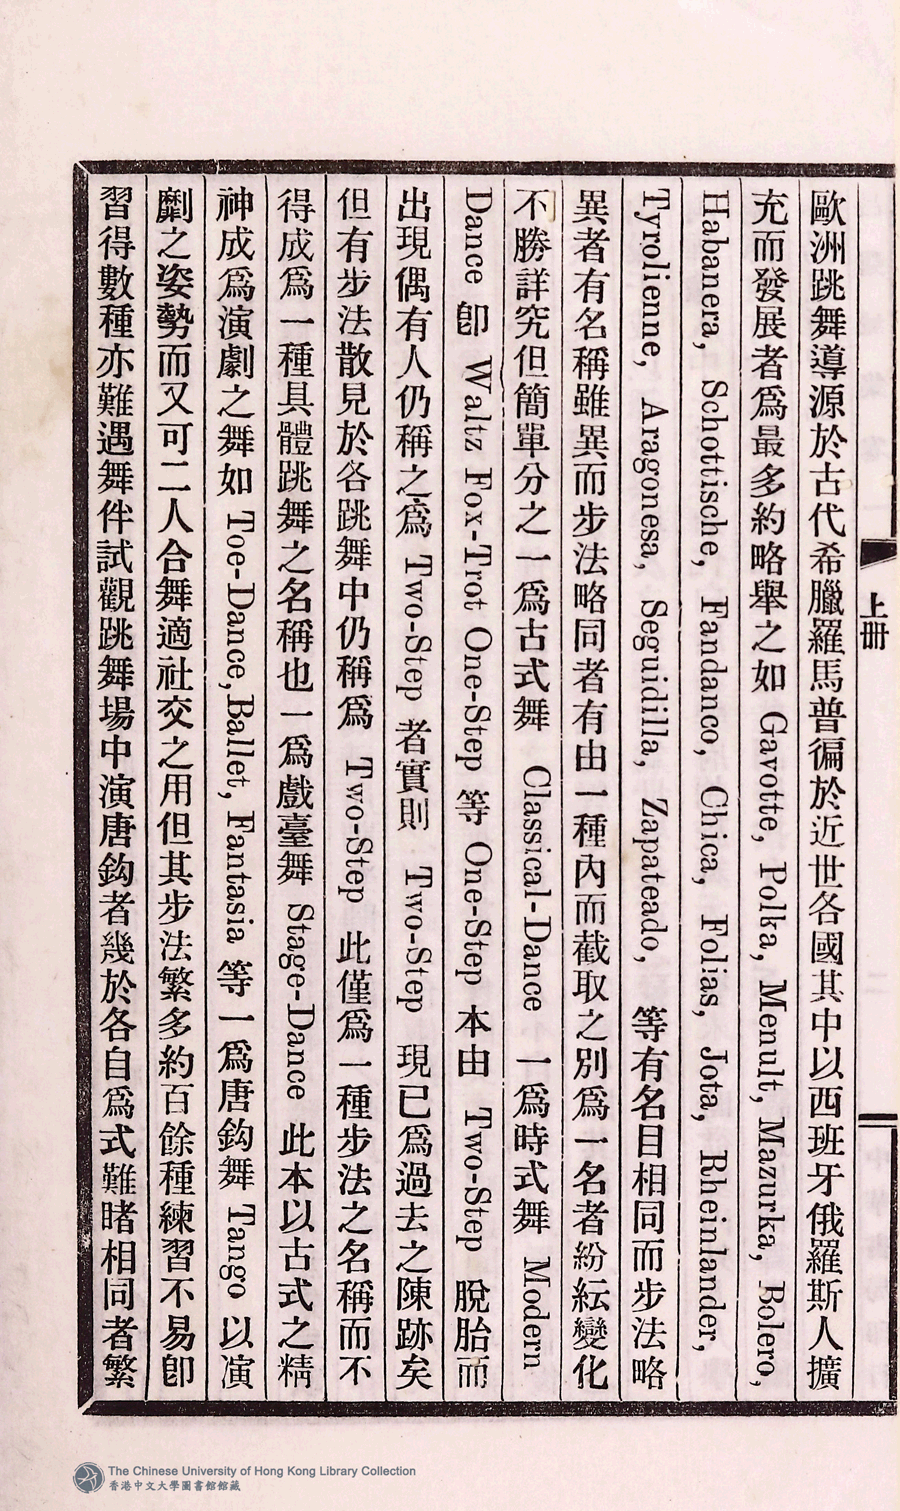 上册
歐洲跳舞導源於古代希臘羅馬普徧於近世各國其中以西班牙俄羅斯人擴
充而發展者爲最多約略舉之如 Gavotte, Polka, Menult, Mazurka, Bolero,
Habanera, Schottische, Fandanco, Chica, Folias, Jota, Rheinlander,
Tyrolienne, Aragonesa, Seguidilla, Zapateado, 等有名目相同而步法略
異者有名稱雖異而步法略同者有由一種內而截取之別爲一名者紛紜變化
不勝詳究但簡單分之一爲古式舞 Classical-Dance 一爲時式舞 Modern
Dance 卽 Waltz Fox-Trot One-Step 等 One-Step 本由 Two-Step 脫胎而
出現偶有人仍稱之爲 Two-Step 者實則 Two-Step 現已爲過去之陳跡矣
但有步法散見於各跳舞中仍稱爲 Two-Step 此僅爲一種步法之名稱而不
得成爲一種具體跳舞之名稱也一爲戲臺舞 Stage-Dance 此本以古式之精
神成爲演劇之舞如 Toe-Dance, Ballet, Fantasia 等一爲唐鈎舞 Tango 以演
劇之姿勢而又可二人合舞適社交之用但其步法繁多約百餘種練習不易卽
習得數種亦難遇舞伴試觀跳舞場中演唐鈎者幾於各自爲式難睹相同者繁
The Chinese University of Hong Kong Library Collection
香港中文大學圖書館館藏